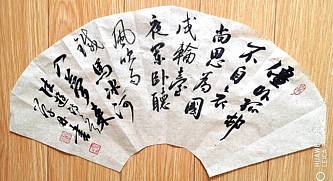 僵卧孤村
不自哀
尚思為國
戍輪臺
夜闌卧聽
風吹雨
鐵馬冰河
入夢來
HUAWEI
LEICA